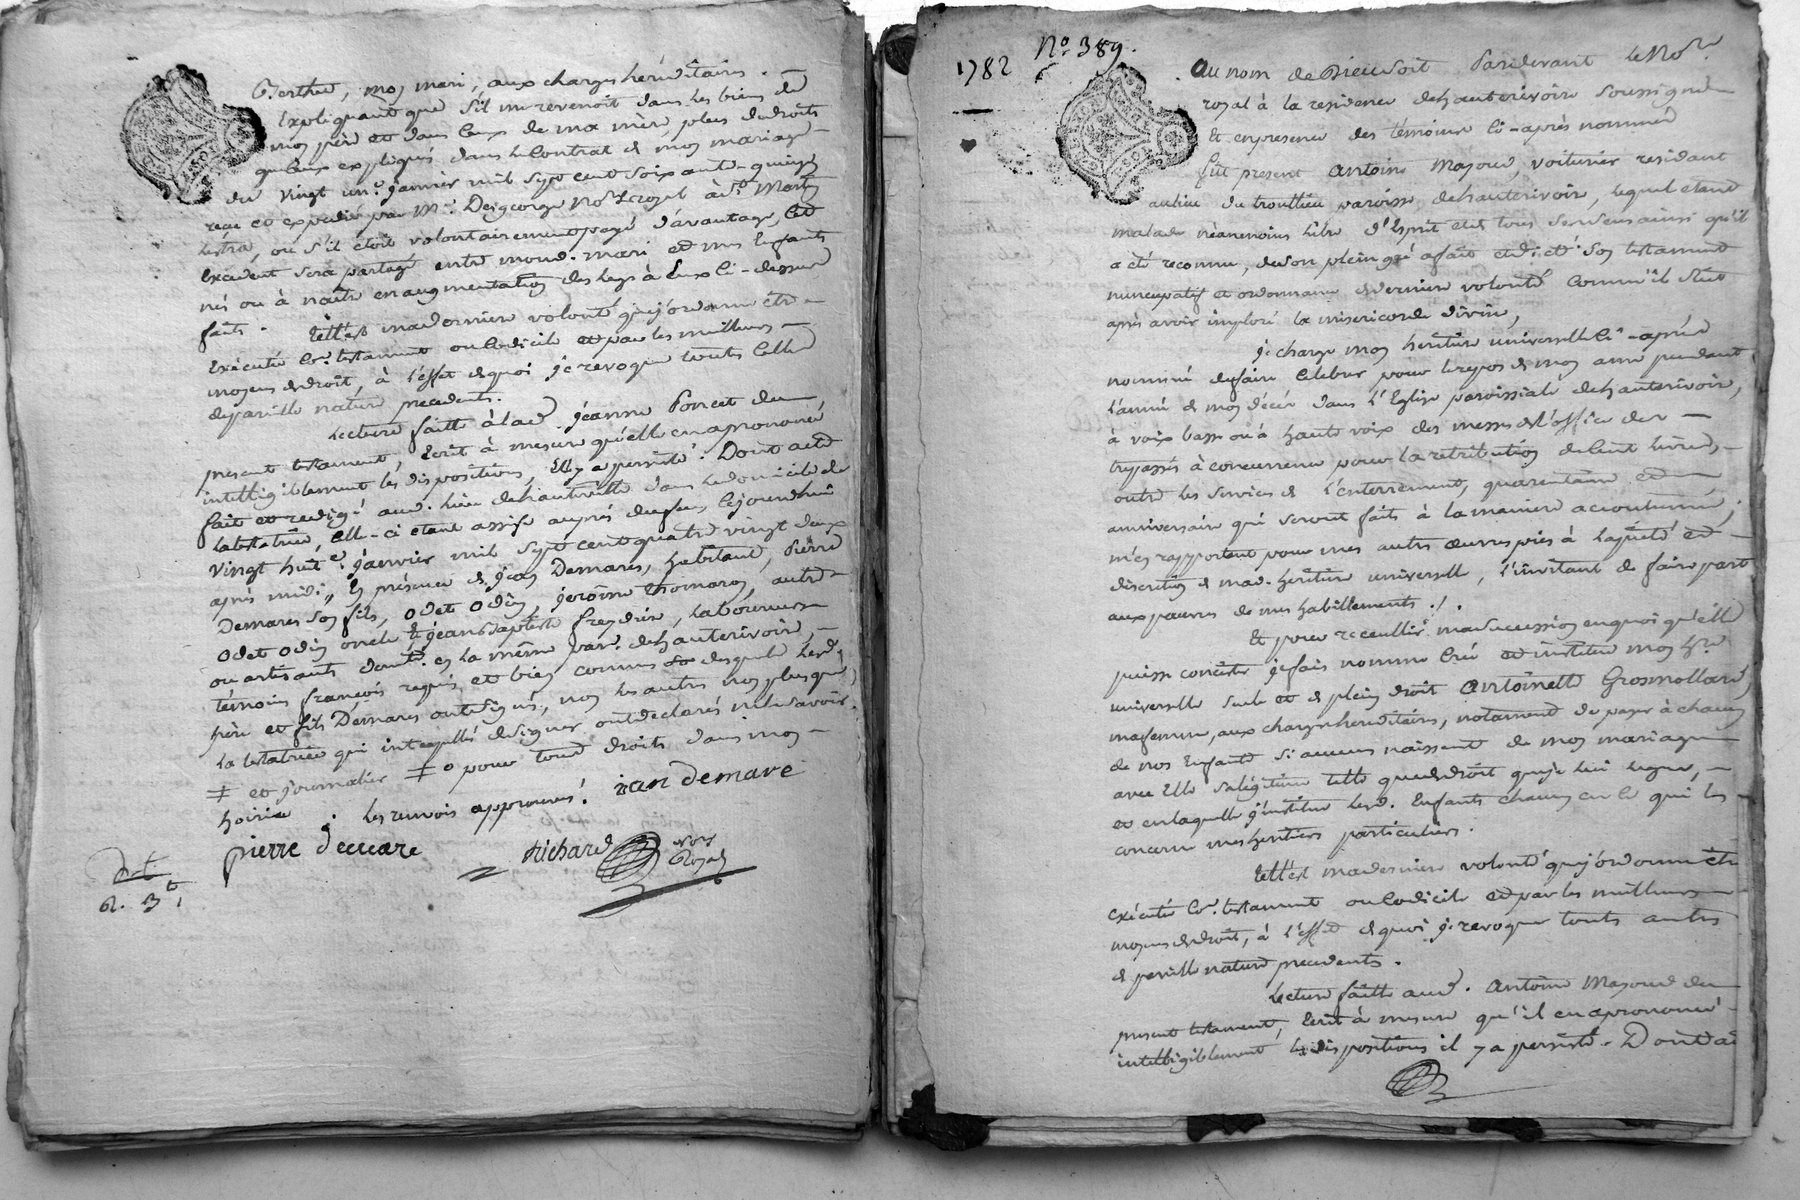 Berthet, moy mari, aux charges héréditaires.
Expliquant que s'il me revenoit dans les biens de
moy père et dans ceux de ma mère, plus de droits
que ceux expliqués dans le Contrat de moy mariage
du Vingt un.e janvier mil sept cent soixante-quinze
recu et expedié par M.e Desgeorge No.re Royal à St Martin
Lestra, ou s'il étoit volontairement payé d'avantage, Cet
Excedent sera partagé entre mond. mari et mes Enfants
nés ou à naitre en augmentation des legs à Eux ci-dessus
faits.
Telle est ma derniere volonté que j'ordonne être
Exécutée Co.e testament ou Codicile et par les meilleurs
moyens de droit, à l'effet de quoi je revoque touts ceux
de pareille nature precedents.
Lecture faitte à lad. jeanne Poncet du
present testament, Ecrit à mesure qu'elle en a prononcé
intelligiblement les dispositions, Elle y a persisté. Dont acte
fait et redigé aud. lieu de hauteville dans le domicile de
la testatrice, Elle-ci etant assise auprès du feu, Cejourdhui
Vingt huit.e janvier mil sept cent quatre vingt deux
après midi, En présence de jean Demares, habitant, Pierre
Demares son fils, Odet Odin, jerôme thomaron, autre
Odet Odin oncle & jean baptiste freydier, laboureurs
ou artisants demt. en la même par. de hauterivoire,
témoins françois requis et bien connus desquels lesd.
père et fils Demares ont signé, non les autres non plus que
la testatrice qui interpellés de signer ont declarés ne le savoir.
‡ et journalier ‡ o pour tout droits dans moy
hoirie. Les renvois approuvés. jean demare
pierre demare Richard No.re Royal
d. t.
R. 3 tt
1782 No. 389.
Au nom de Dieu soit Pardevant le No.re
royal à la residence de hauterivoire soussigné
Et en presence des témoins ci-après nommés
fut present Antoine Mayoud, voiturier residant
au lieu du trouttieu paroisse de hauterivoire, lequel etant
malade néanmoins libre d'Esprit et de tous ses sens ainsi qu'il
a été reconnu, de son plein gré a fait et dicté son testament
nuncupatif et ordonnance de derniere volonté Comm'il suit
après avoir imploré la misericorde divine,
je charge moy heritiere universelle ci-après
nommée de faire celebrer pour le repos de moy ame pendant
l'année de moy décés dans l'Eglise paroissiale de hauterivoire,
à voix basse ou à haute voix des messes de l'office des
trepassés à concurrence pour la retribution de cent livres,
outre les services de l'enterrement, quarantaine et
anniversaire qui seront faits à la maniere accoutumée;
m'en rapportant pour mes autres œuvres pies à la pieté et
discretion de mad. heritiere universelle, l'invitant de faire part
aux pauvres de mes habillements./.
Et pour receuillir ma succession en quoi qu'elle
puisse concister je fais nomme Créé et institue moy h.re
universelle seule et de plein droit Antoinette Grosmollard,
ma femme, aux charges hereditaires, notament de payer à chacun
de nos Enfants si aucuns naissent de moy mariage
avec Elle sa légitime telle que de droit que je leur legue,
et en laquelle j'institue lesd. Enfants chacun en ce qui les
concerne mes heritiers particuliers.
Telle est ma derniere volonté que j'ordonne être
exécutée Co.e testament ou Codicile et par les meilleurs
moyens de droit, à l'effet de quoi je revoque touts autres
de pareille nature precedents.
Lecture faitte aud. Antoine Mayoud du
present testament, Ecrit à mesure qu'il en a prononcé
intelligiblement les dispositions il y a persisté. Dont a